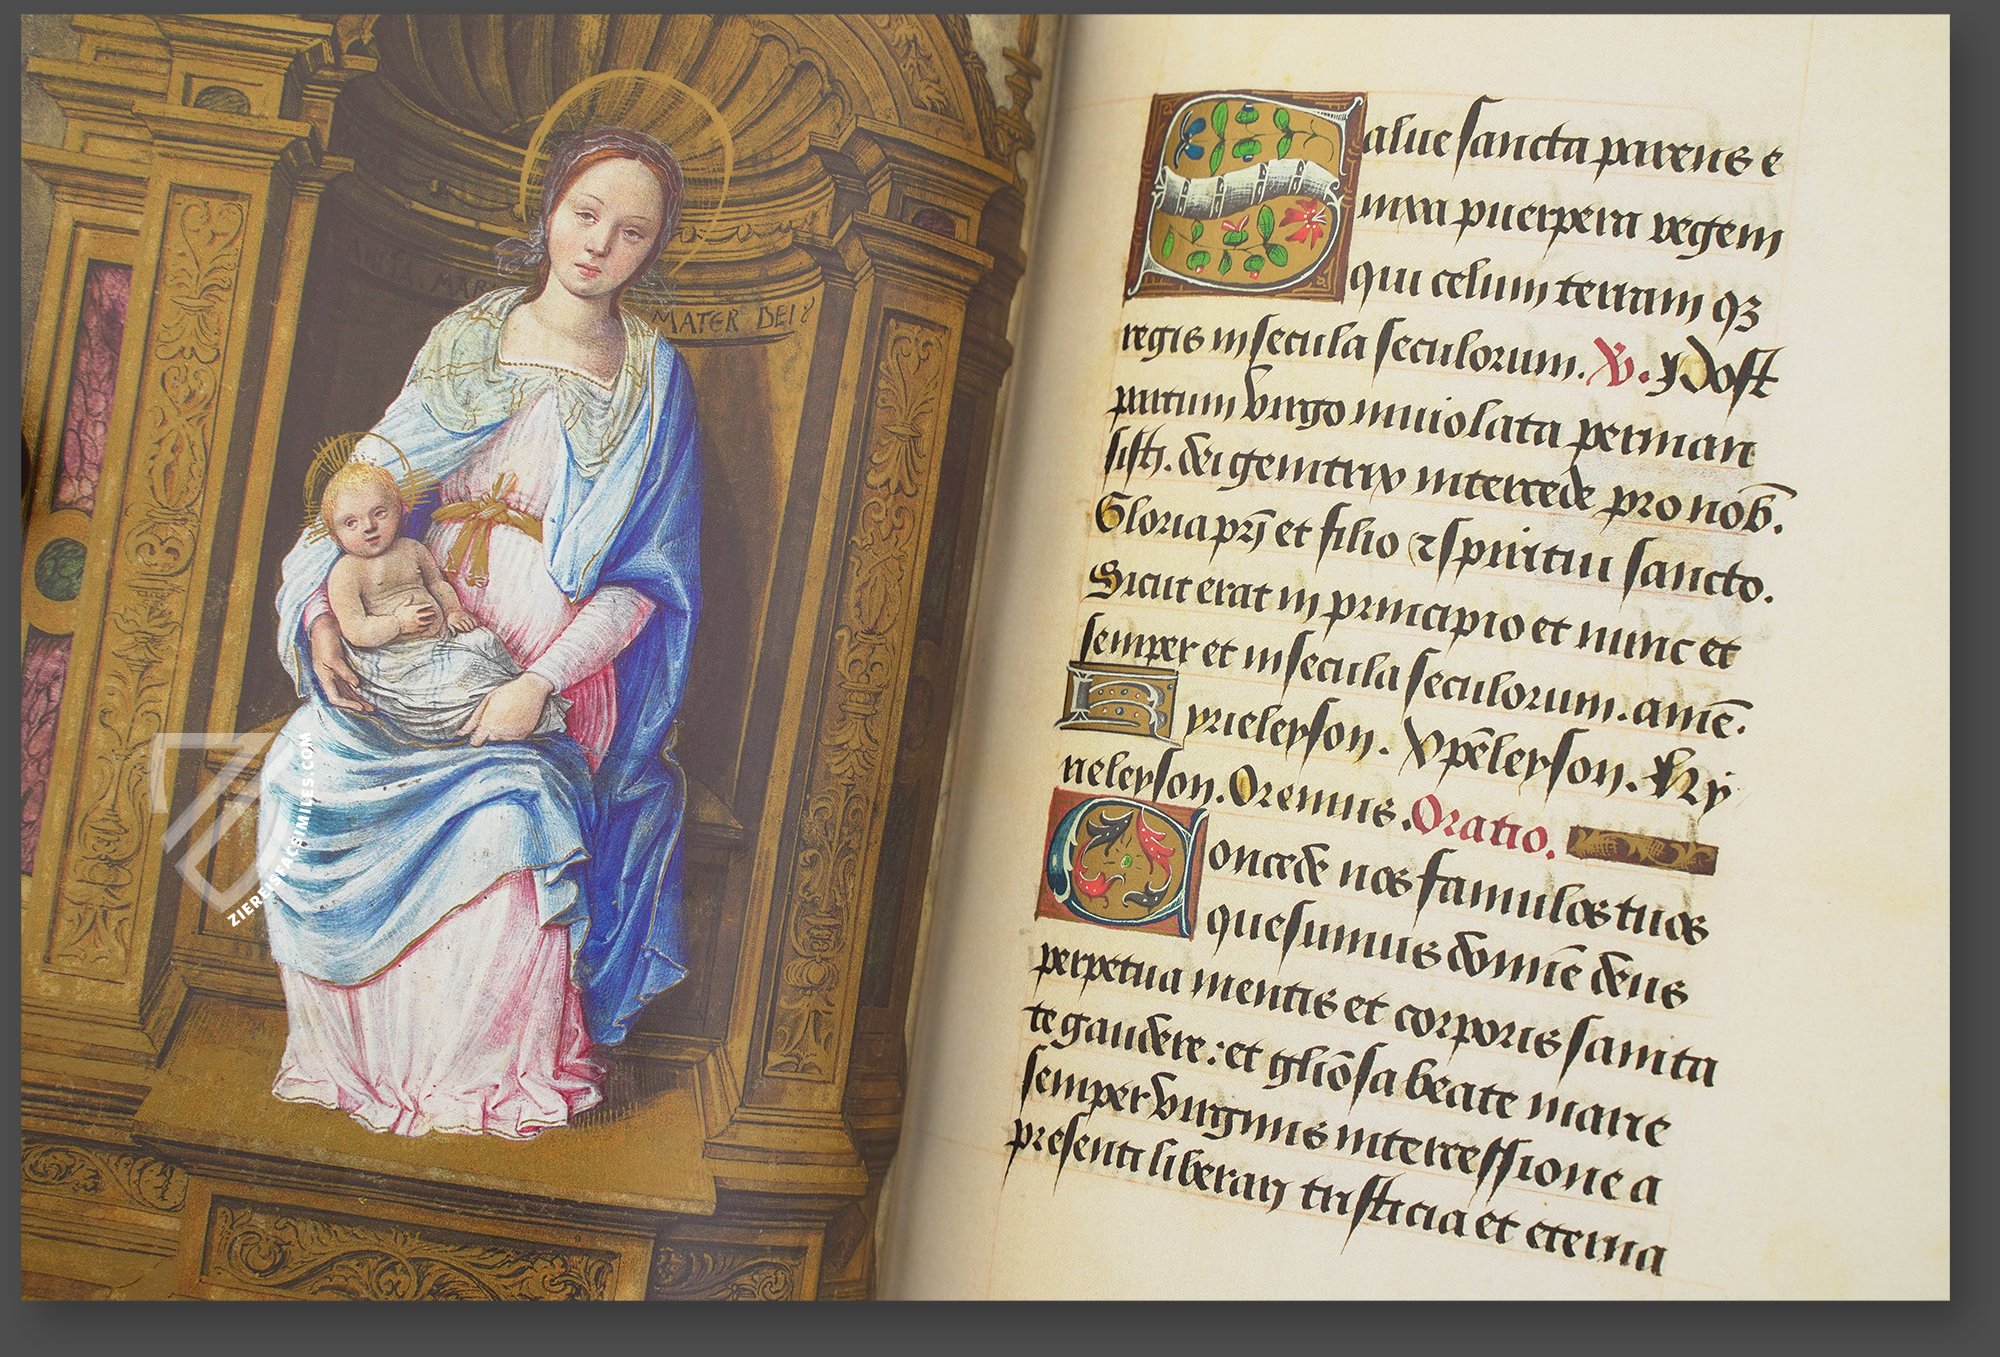 MATER DEI
ZIEREISFACSIMILES.COM
Salue sancta parens e
nixa puerpera regem
qui celum terram qꝫ
regis in secula seculorum. V. Post
partum virgo inuiolata perman
sisti. dei genitrix intercede pro nob̄.
Gloria pr̄i et filio ⁊ spiritui sancto.
Sicut erat in principio et nunc et
semper et in secula seculorum. amē.
Kyrieleyson. Xpēleyson. Ky
rieleyson. Oremus. Oratio.
Concede nos famulos tuos
quesumus domīe deus
perpetua mentis et corporis sanita
te gaudere: et gliōsa beate marie
semper virginis intercessione a
presenti liberari tristicia et eterna